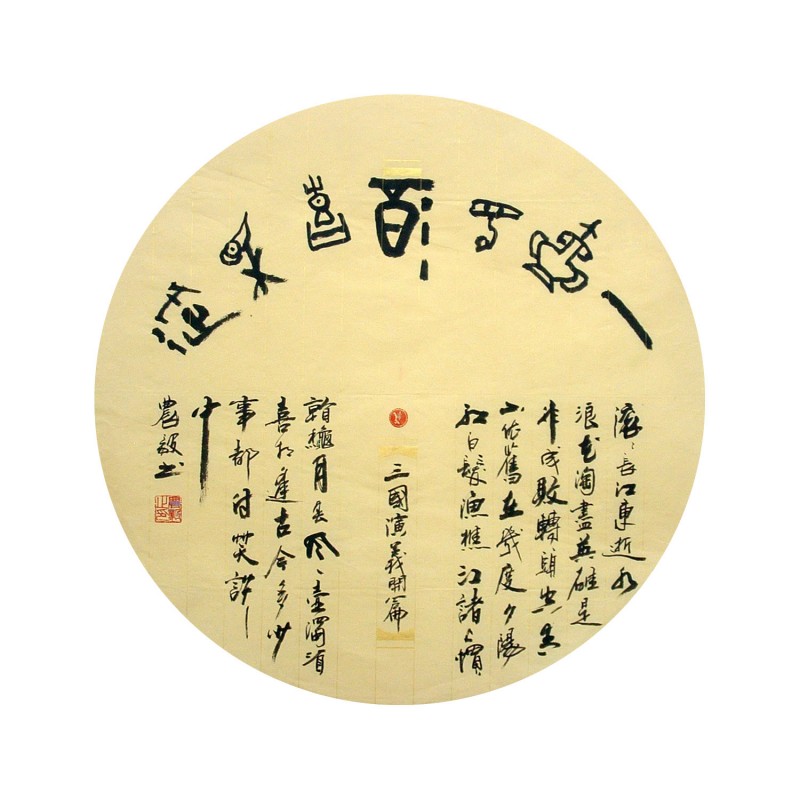 滾滾長江東逝水
浪花淘盡英雄是
非成敗轉頭空青
山依舊在幾度夕陽
紅白髮漁樵江諸上慣
三國演義開篇
看穐月春風一壺濁酒
喜相逢古今多少
事都付笑談
中
農毅书